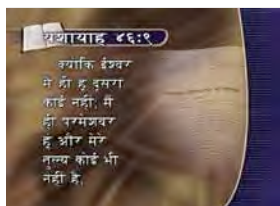 यशायाह ४६:९
क्योकि ईश्वर
मै ही हू दुसरा
कोई नहीं; मैं
ही परमेश्वर
हू और मेरे
तुल्य कोई भी
नहीं है,